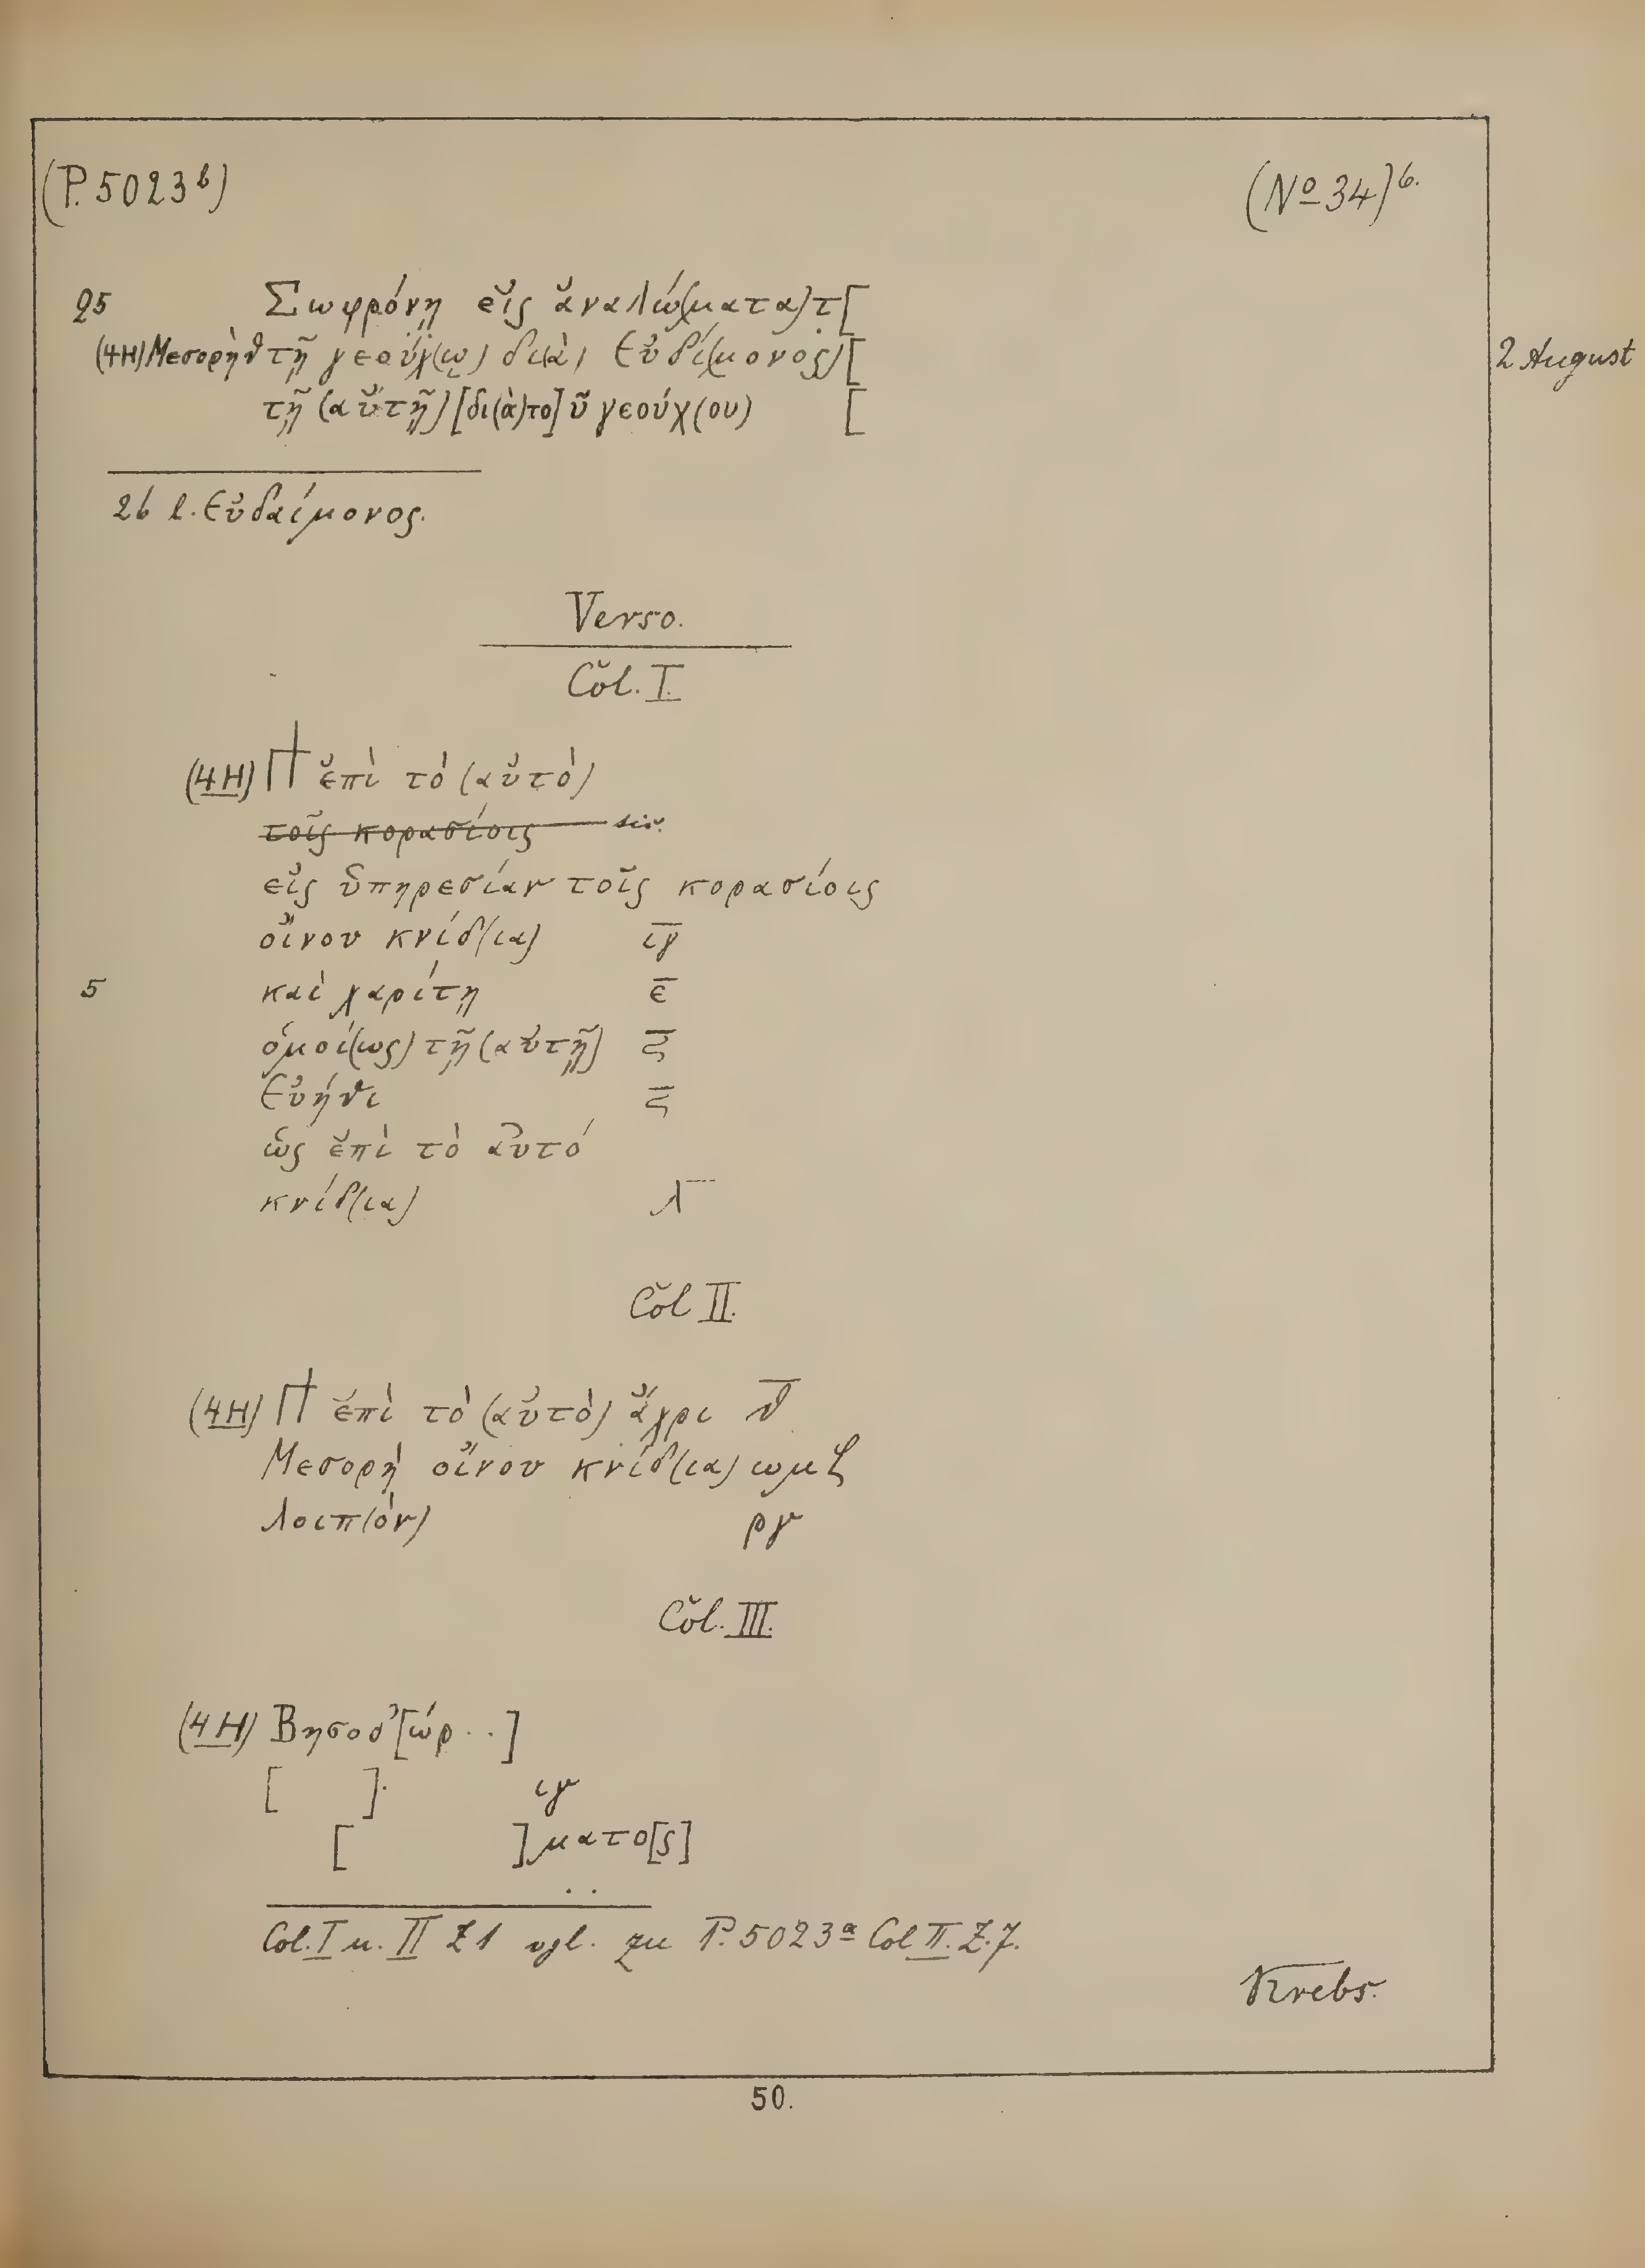 (P. 5023ᵇ)
(Nº 34) 6.
25 Σωφρόνῃ εἰς ἀναλώ(ματα) τ̣[
(4H) Μεσορὴ θ τῇ γεούχ(ῳ) δι(ὰ) Εὐδί(μονος) [
2 August
τῇ (αὐτῇ) [δι(ὰ) το]ῦ γεούχ(ου) [
26 l. Εὐδαίμονος.
Verso.
Col. I.
(4H) Π ἐπὶ τὸ (αὐτὸ)
τοῖς κορασίοις sic.
εἰς ὑπηρεσίαν τοῖς κορασίοις
οἴνου κνίδ(ια) ιγ
5 καὶ χαρίτῃ ε
ὁμοί(ως) τῇ (αὐτῇ) ϛ
Εὐήθι ϛ
ὡς ἐπὶ τὸ αὐτό
κνίδ(ια) λ
Col II.
(4H) Π ἐπὶ τὸ (αὐτὸ) ἄχρι θ
Μεσορὴ οἴνου κνίδ(ια) ωμζ
λοιπ(ὸν) ργ
Col. III.
(4H) Βησοδ[ώρ . . ]
[ ]. ιγ
[ ]ματο[ς]
. .
Col. I u. II Z 1 vgl. zu P. 5023ᵃ Col II. Z. 7.
Krebs.
50.